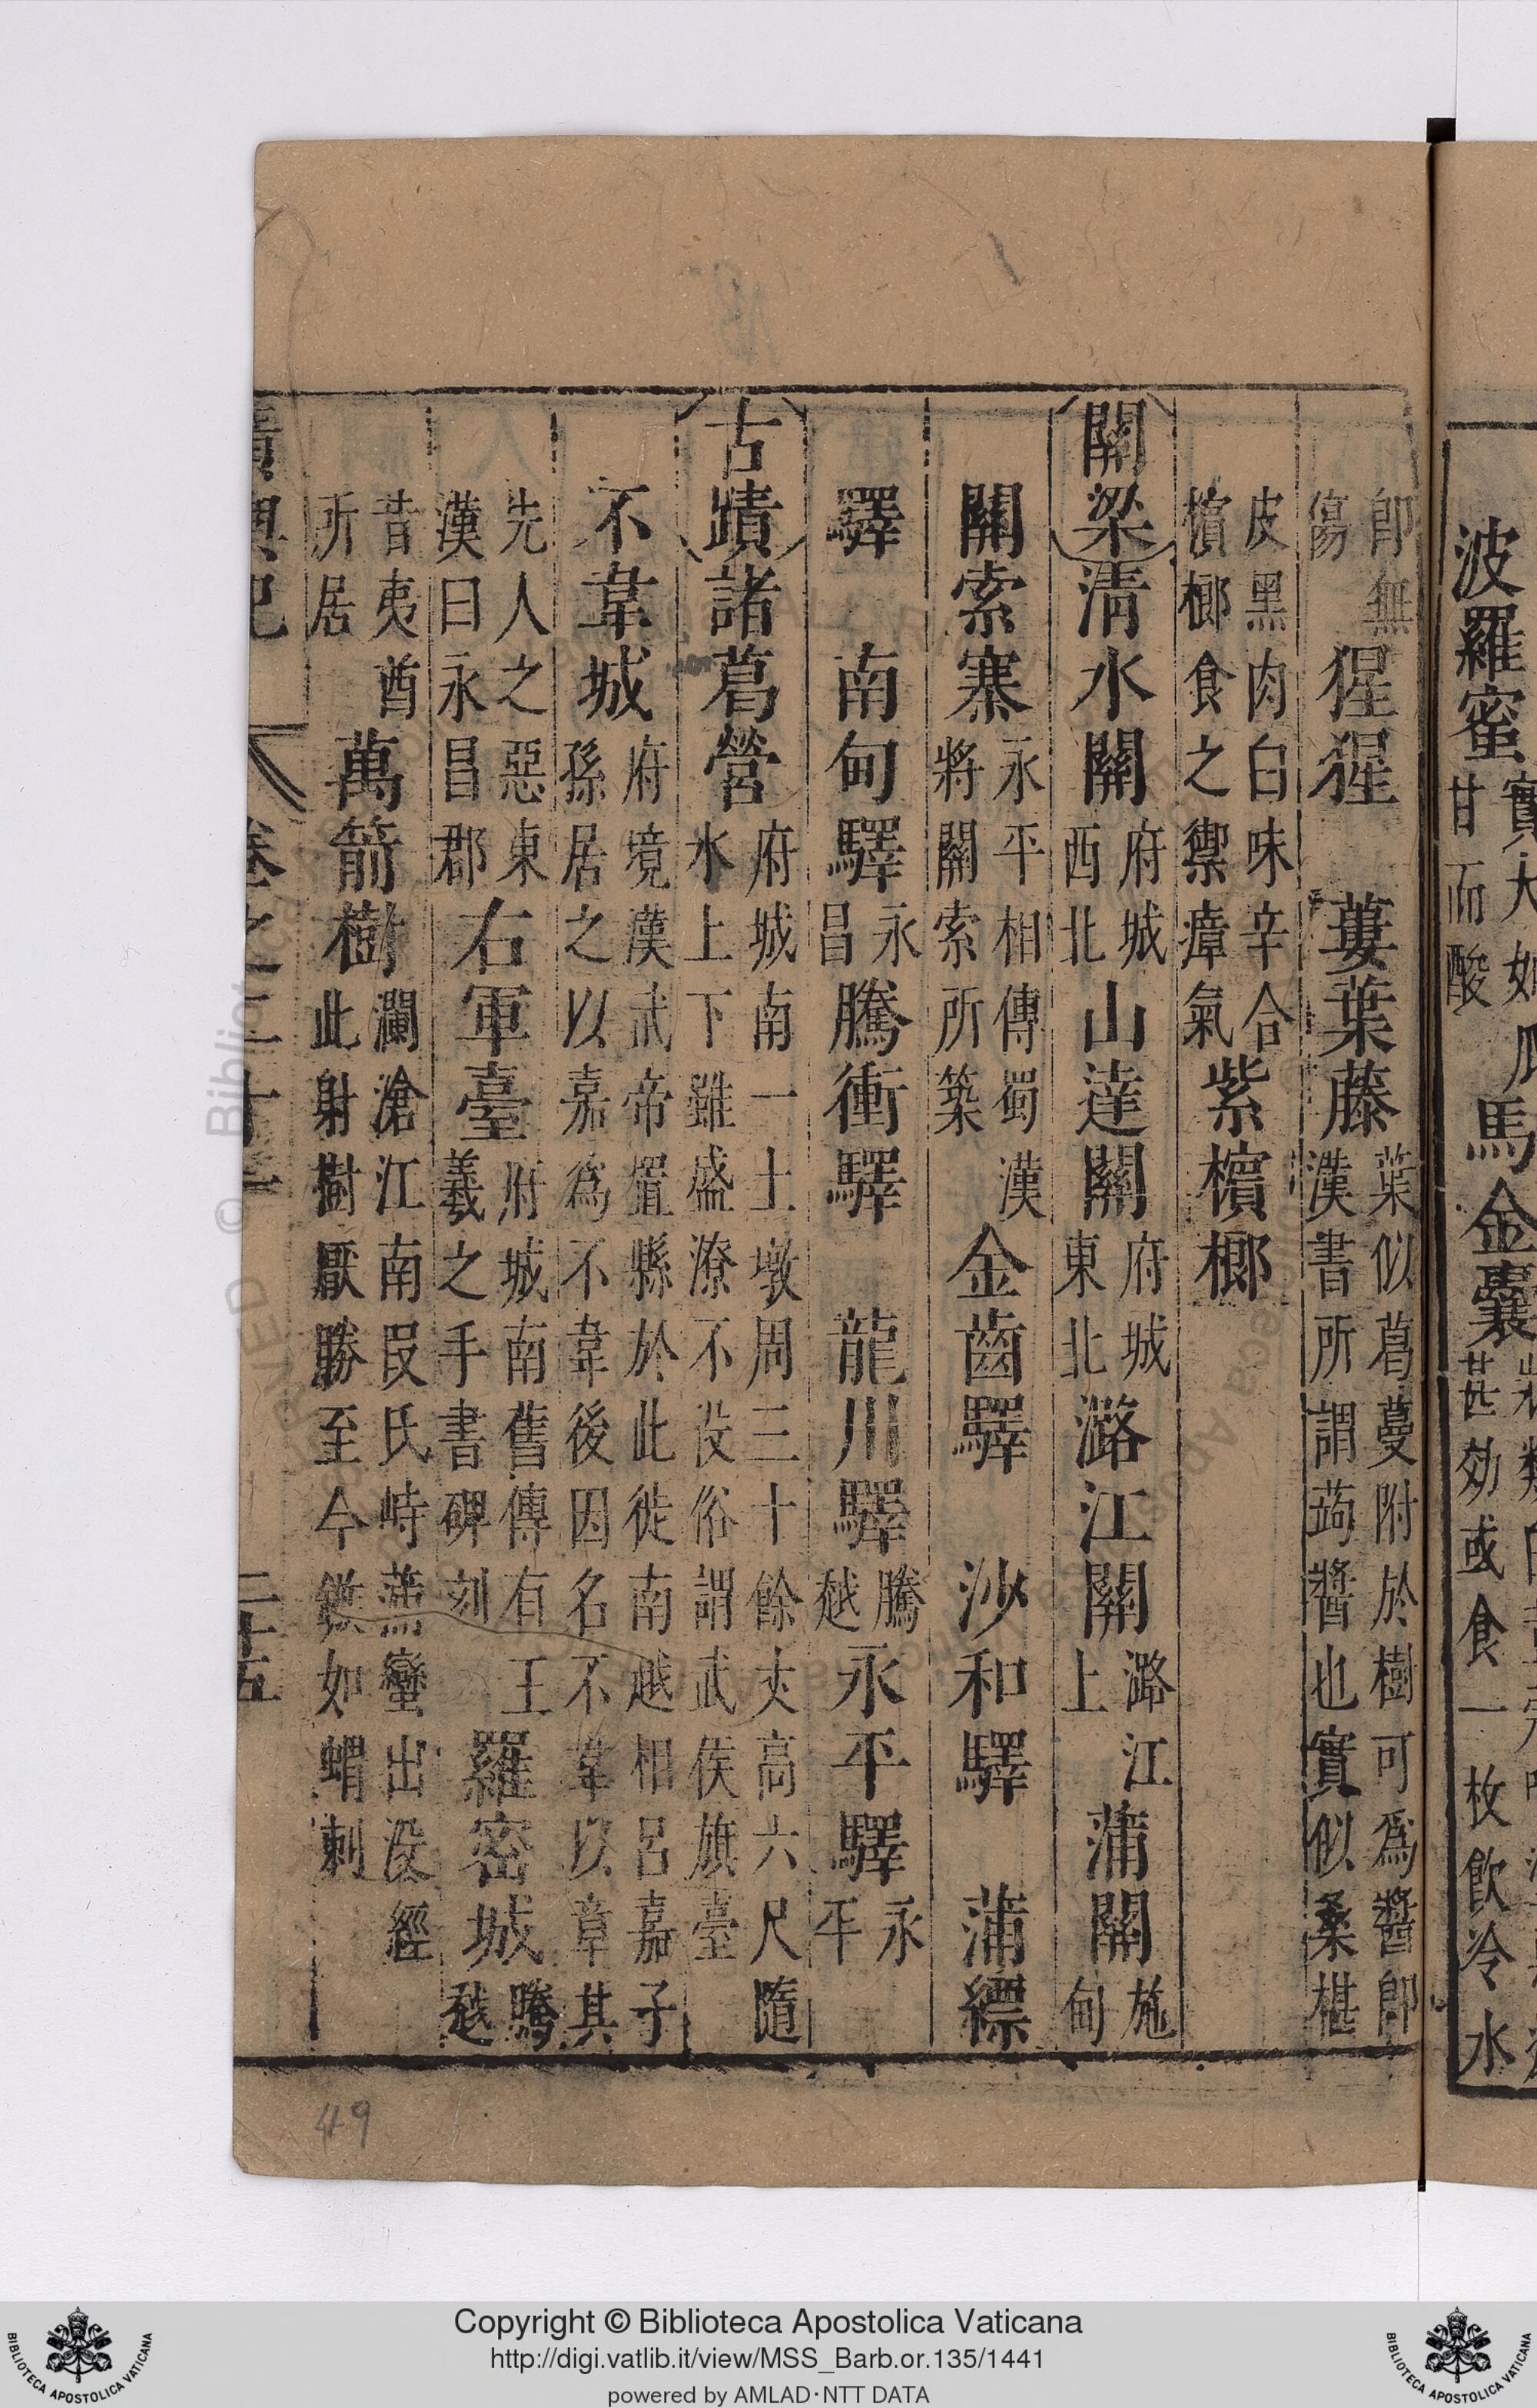 波羅蜜
甘而酸
馬金囊
甚効或食一枚飲冷水
即無
傷
猩猩
蔞葉藤
葉似葛蔓附於樹可爲醬即
漢書所謂蒟醬也實似桑椹
皮黑肉白味辛合
檳榔食之禦瘴氣
紫檳榔
關梁
清水關
府城
西北
山達關
府城
東北
潞江關
潞江
上
蒲關
施
甸
關索寨
永平相傳蜀漢
將關索所築
金齒驛
沙和驛
蒲縹
驛
南甸驛
永
昌
騰衝驛
龍川驛
騰
越
永平驛
永
平
古蹟
諸葛營
府城南一土墩周三十餘丈高六尺隨
水上下雖盛潦不没俗謂武侯旗臺
不韋城
府境漢武帝置縣於此徙南越相呂嘉子
孫居之以嘉爲不韋後因名不韋以章其
先人之惡東
漢曰永昌郡
右軍臺
府城南舊傳有王
羲之手書碑刻
羅密城
騰
越
昔夷酋
所居
萬箭樹
瀾滄江南段氏時蒲蠻出没經
此射樹厭勝至今鏃如蝟刺
廣輿記
卷之二十一
二十五
49
Copyright © Biblioteca Apostolica Vaticana
http://digi.vatlib.it/view/MSS_Barb.or.135/1441
powered by AMLAD·NTT DATA
BIBLIOTECA APOSTOLICA VATICANA
BIBLIOTECA APOSTOLICA VATICANA